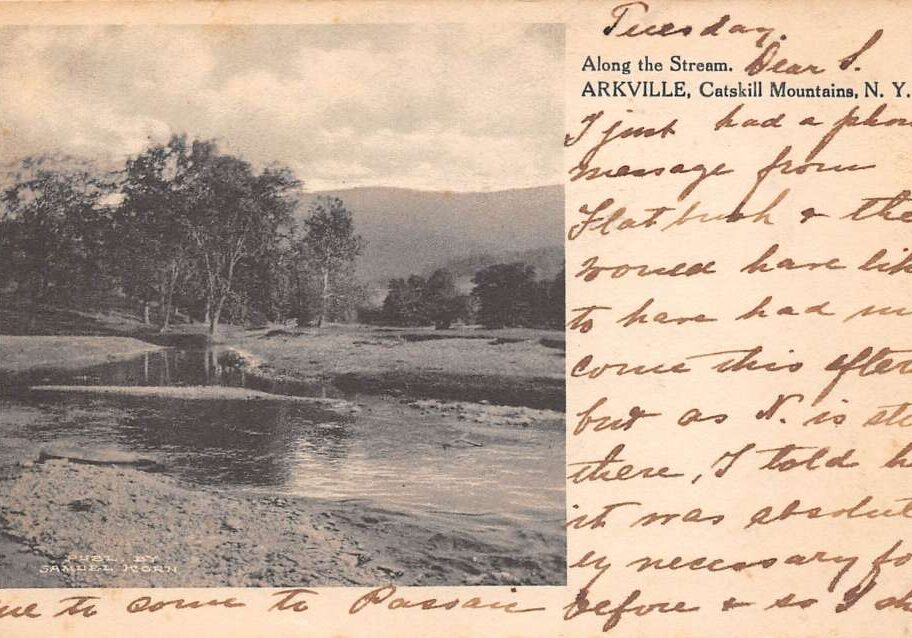 Tuesday.
Along the Stream. Dear S.
ARKVILLE, Catskill Mountains, N. Y.
I just had a phon
message from
Flatbush & the
would have lik
to have had m
come this after
but as N. is st
there, I told h
it was absolut
ely necessary fo
me to come to Passaic before & so I
PUBL. BY
SAMUEL KORN